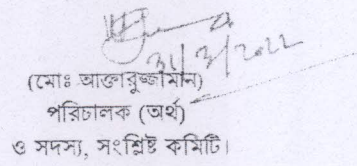 ৩১/৩/২০২২
(মোঃ আক্তারুজ্জামান)
পরিচালক (অর্থ)
ও সদস্য, সংশ্লিষ্ট কমিটি।